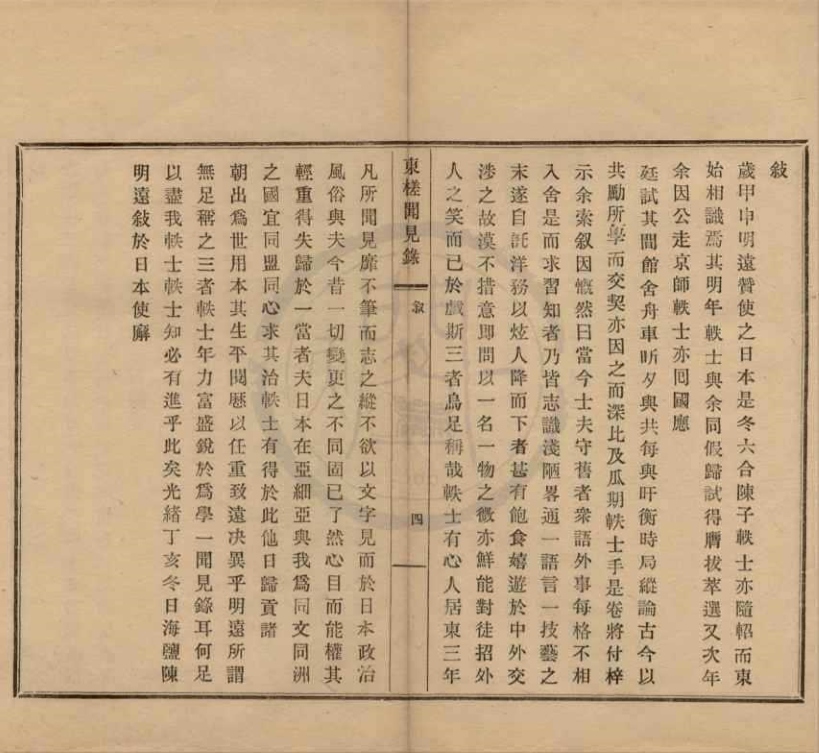 敍
歲甲申明遠贊使之日本是冬六合陳子軼士亦隨軺而東
始相識焉其明年軼士與余同假歸試得膺拔萃選又次年
余因公走京師軼士亦囘國應
廷試其間館舍舟車昕夕與共每與盱衡時局縱論古今以
共勵所學而交契亦因之而深比及瓜期軼士手是卷將付梓
示余索叙因慨然曰當今士夫守舊者衆語外事每格不相
入舍是而求習知者乃皆志識淺陋畧通一語言一技藝之
末遂自託洋務以炫人降而下者甚有飽食嬉遊於中外交
涉之故漠不措意卽問以一名一物之微亦鮮能對徒招外
人之笑而已於戲斯三者烏足稱哉軼士有心人居東三年
東槎聞見錄
敍
四
凡所聞見靡不筆而志之縱不欲以文字見而於日本政治
風俗與夫今昔一切變更之不同固已了然心目而能權其
輕重得失歸於一當者夫日本在亞細亞與我爲同文同洲
之國宜同盟同心求其治軼士有得於此他日歸貢諸
朝出爲世用本其生平閱歷以任重致遠决異乎明遠所謂
無足稱之三者軼士年力富盛銳於爲學一聞見錄耳何足
以盡我軼士軼士知必有進乎此矣光緒丁亥冬日海鹽陳
明遠敍於日本使廨